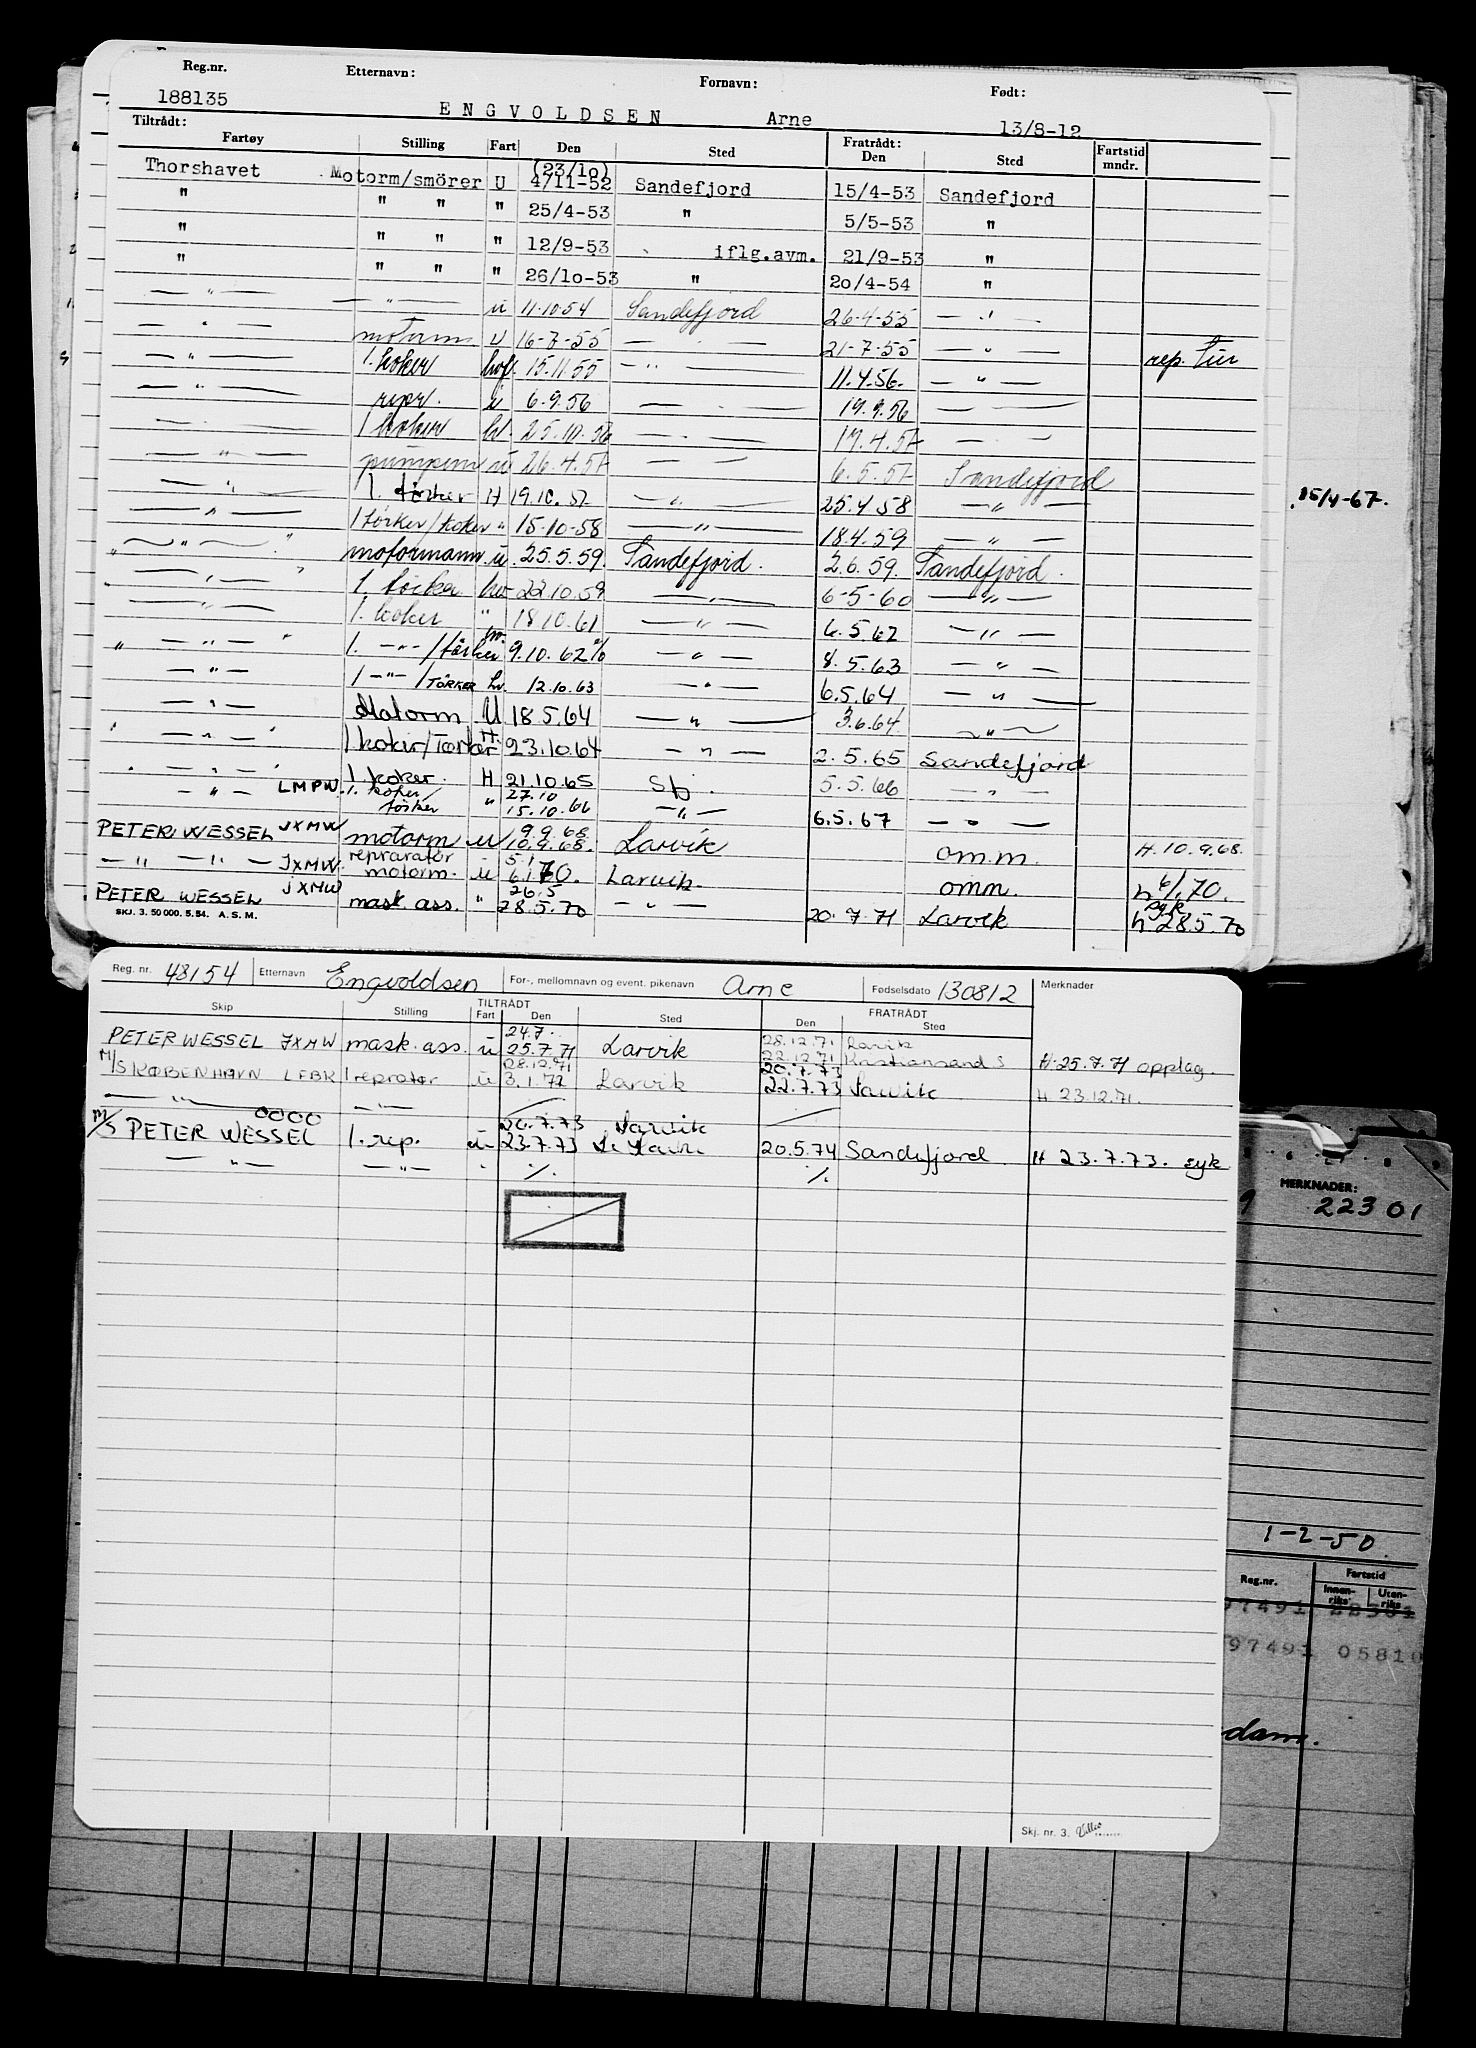 Reg.nr. Etternavn: Fornavn: Født:
188135 ENGVOLDSEN Arne 13/8-12
Tiltrådt: Fratrådt:
Fartøy Stilling Fart Den Sted Den Sted Fartstid mndr.
(23/10)
Thorshavet Motorm/smörer U 4/11-52 Sandefjord 15/4-53 Sandefjord
" " " " 25/4-53 " 5/5-53 "
" " " " 12/9-53 iflg.avm. 21/9-53 "
" " " " 26/10-53 " 20/4-54 "
— " — — " — u 11.10 54 Sandefjord 26-4-55 — " —
— " — motorm u 16-7-55 — " — 21-7-55 — " — rep. tur
— " — 1. koker hvf. 15.11.55 — " — 11.4.56. — " —
— " — repr. u 6.9.56 — " — 19.9.56 — " —
— " — 1 koker hv. 25.10.56 — " — 17.4.57 — " —
— " — pumpem u 26.4.57 — — 6.5.57 Sandefjord
— " — 1. törker H 19.10.57 — " — 25.4 58 — " —
— " — 1 törker/koker " 15-10-58 — " — 18.4.59 — " —
15/4-67.
" — " — " motormann u. 25.5.59. Sandefjord. 2.6.59. Sandefjord.
— " — 1. törker hv- 22.10.59 — " — 6-5-60 — " —
— " — 1. koker " 18 10.61 — " — 6.5.62 — " —
" — " — " 1. — " — /törker hv. 9.10.62 % — " — 8.5.63 — " —
— " — 1 — " — /TÖRKER hv. 12.10.63 — " — 6.5.64 — " —
— " — Matorm U 18.5.64 — " — 3.6.64 — " —
— " — 1 koker/Törker H. 23.10.64 — " — 2.5.65 Sandefjord
" — " — " 1. koker. H 21.10.65 Sfj. 5.5.66 — " —
— " — LMPW. 1. koker/ törker " 27.10 15.10.66 — " — 6.5.67 — " —
PETER WESSEL JXMW motorm u 9.9.68 10.9.68. Larvik om.m. H.10.9.68.
— " — " — JXMW. reprarator motorm. u 5.1 6.1.70. Larvik. omm. h 6/1.70.
PETER WESSEL JXMW mask. ass. " 26.5 28.5.70 — " — 20.7.71 Larvik syk h 28.5.70
SKJ. 3. 50 000. 5.54. A.S.M.
Reg. nr. 48154 Etternavn Engvoldsen For-, mellomnavn og event. pikenavn Arne Fødselsdato 130812 Merknader
TILTRÅDT FRATRÅDT
Skip Stilling Fart Den Sted Den Sted
24.7. 28.12.71 Larvik
PETER WESSEL JXMW mask. ass. u 25.7.71 Larvik 22.12.71 Kristiansand S H 25.7.71 opplag.
28.12.71 20.7.73
M/S KØBENHAVN LFBK 1 reprator u 3.1.72 Larvik 22.7.73 Larvik H 23.12.71.
— " — — " —
OOOO 20.7.73 Larvik
M/S PETER WESSEL 1. rep. u 23.7.73 Larvik 20.5.74 Sandefjord H 23.7.73. syk
— " — — " — " %. %.
MERKNADER:
9 22301
1-2-50.
Reg.nr. Fartstid
Innen-riks Uten-riks
97491 22301
97491 05810
dam.
Skj. nr. 3.